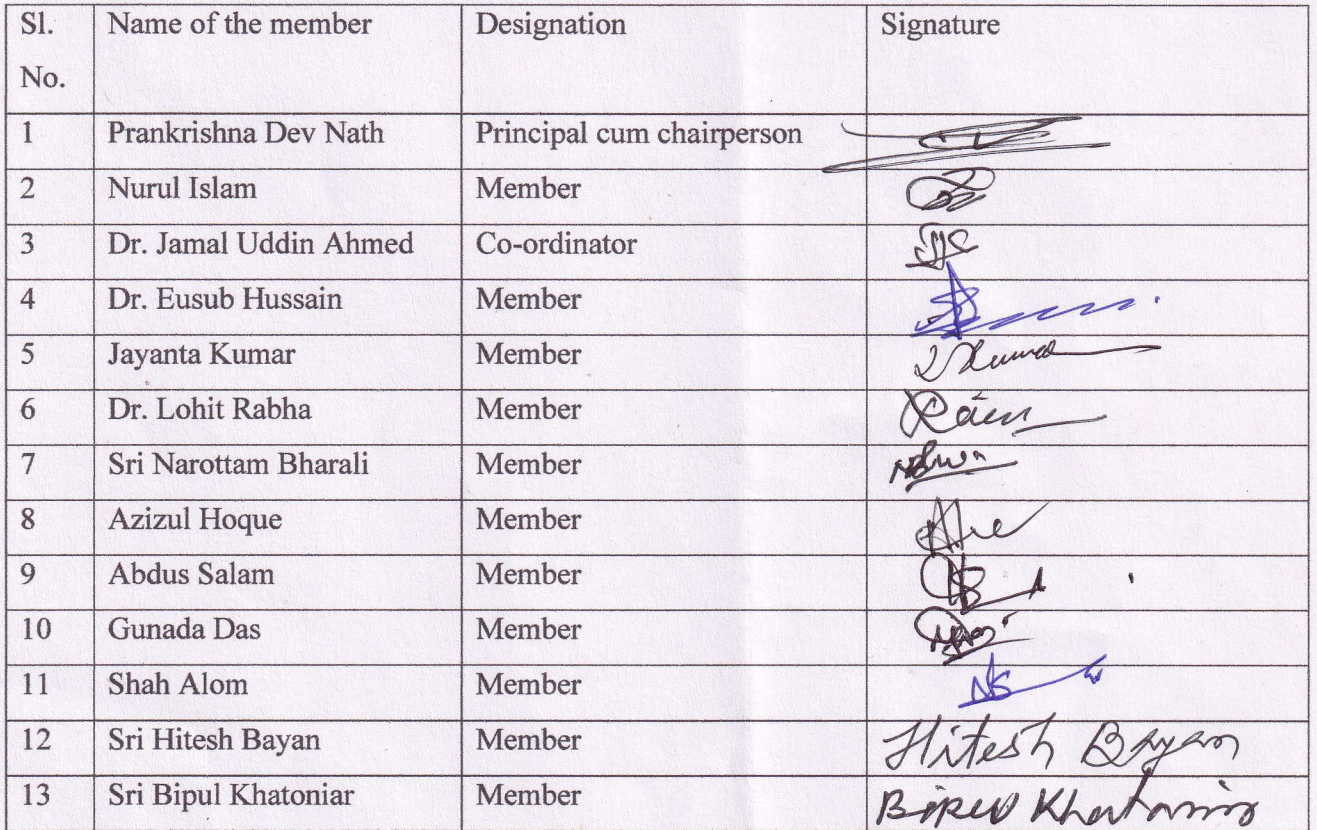 Sl. No. Name of the member Designation Signature
1 Prankrishna Dev Nath Principal cum chairperson
2 Nurul Islam Member
3 Dr. Jamal Uddin Ahmed Co-ordinator
4 Dr. Eusub Hussain Member
5 Jayanta Kumar Member
6 Dr. Lohit Rabha Member
7 Sri Narottam Bharali Member
8 Azizul Hoque Member
9 Abdus Salam Member
10 Gunada Das Member
11 Shah Alom Member
12 Sri Hitesh Bayan Member Hitesh Bayan
13 Sri Bipul Khatoniar Member Bipul Khatoniar